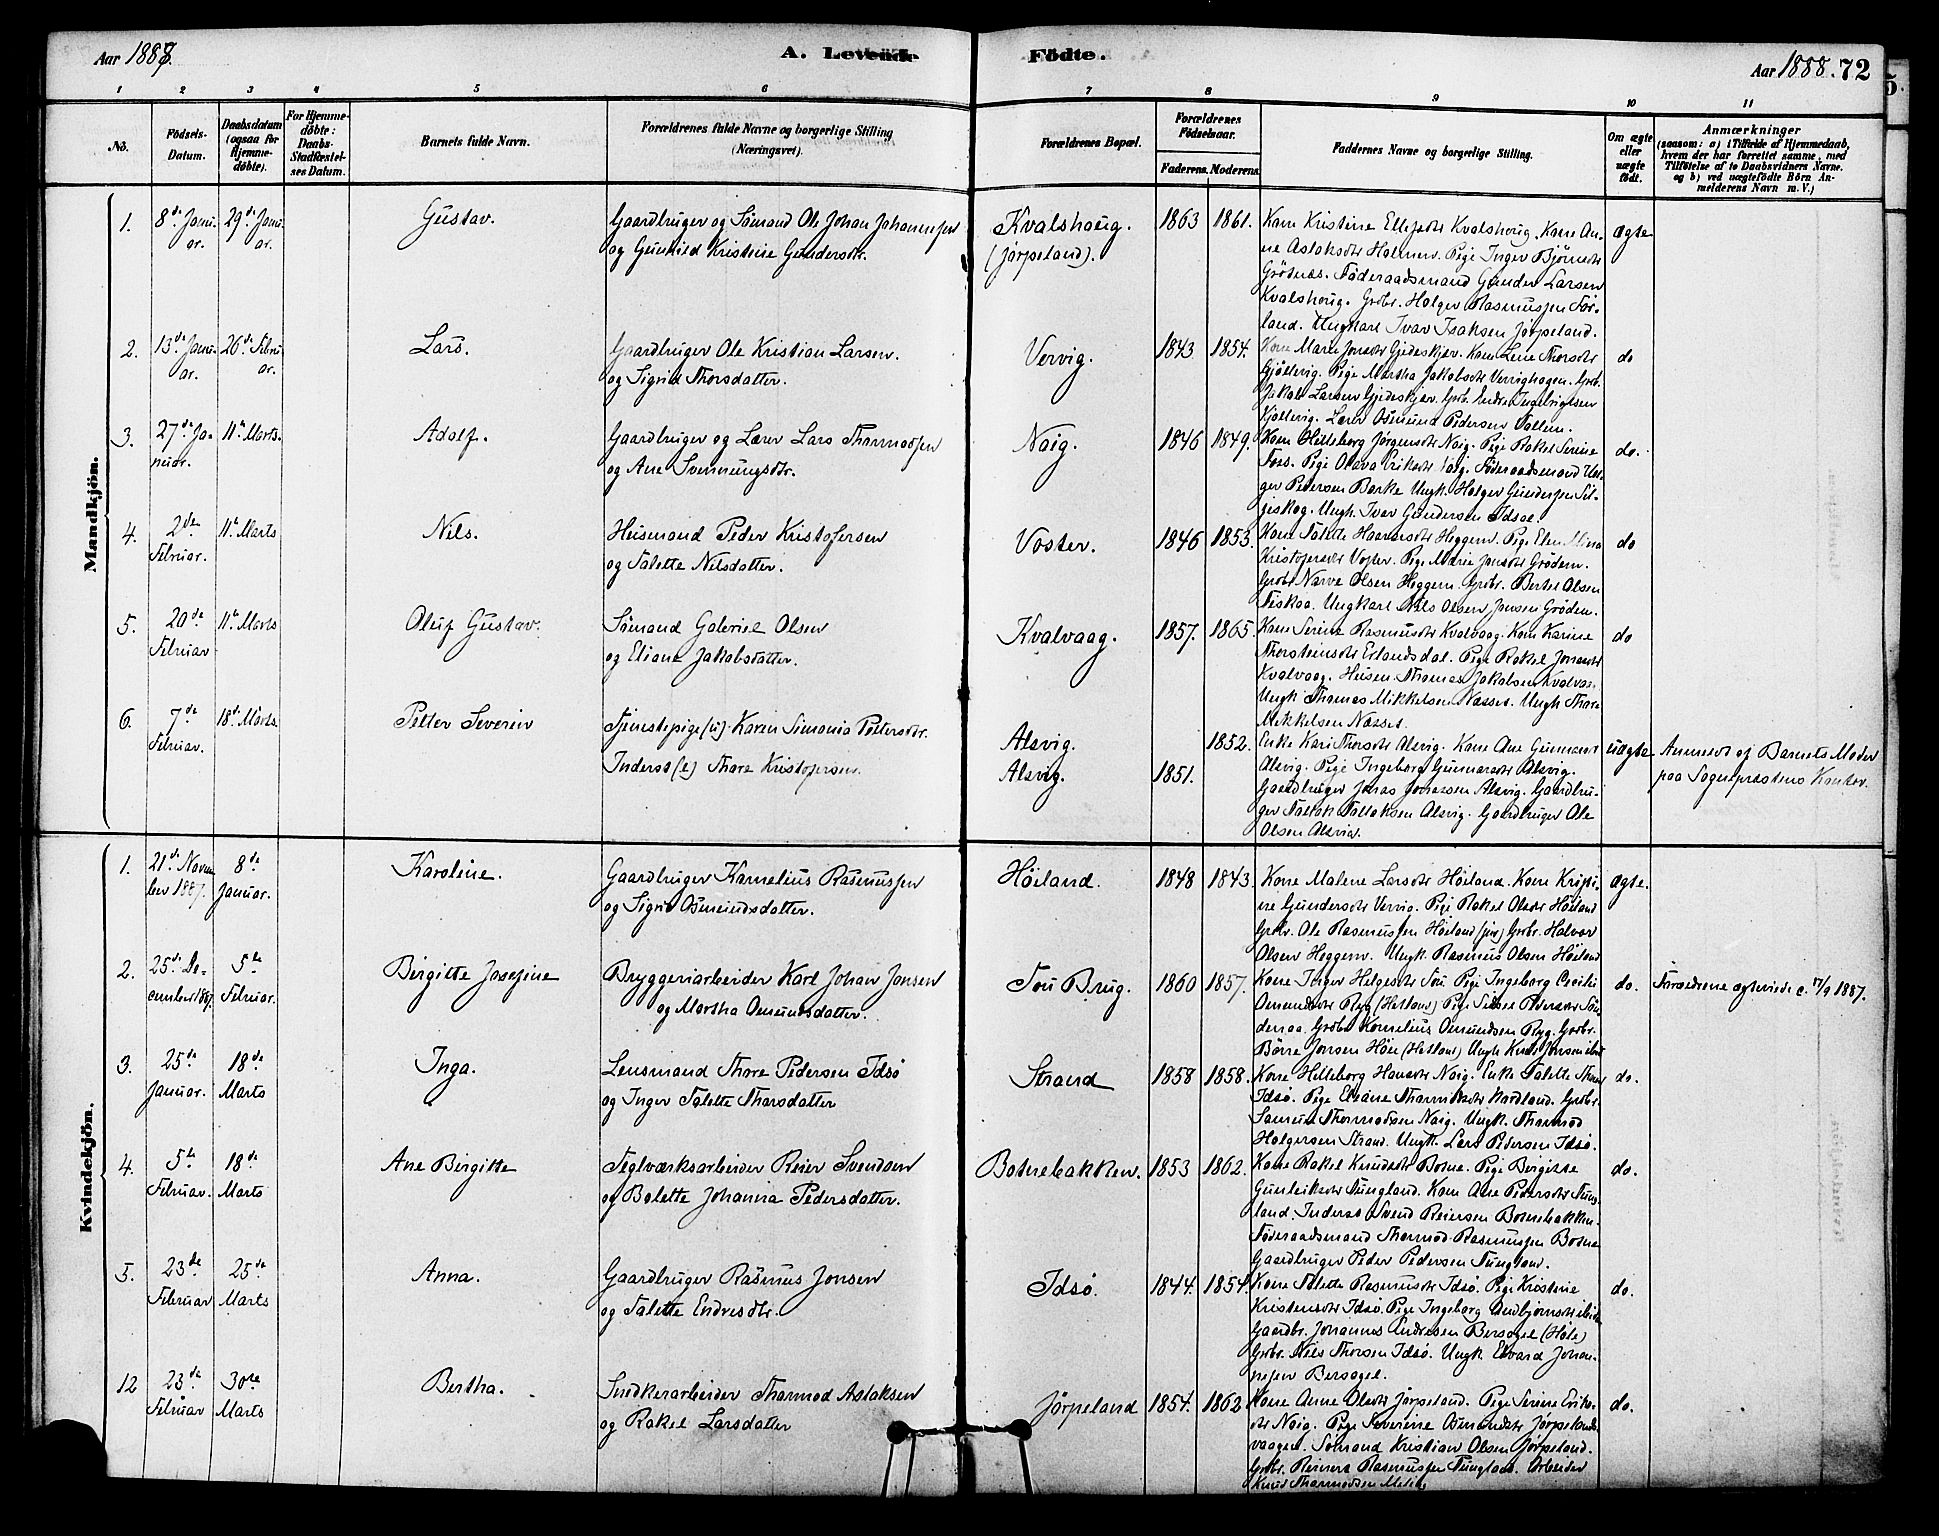 Aar 1888.
A. Levende
Födte.
Aar 1888. 72
1 2 3 4 5 6 7 8 9 10 11
No.
Födsels-
Datum.
Daabsdatum
(ogsaa for
Hjemme-
döbte).
For Hjemme-
döbte:
Daabs-
Stadfæstel-
ses Datum.
Barnets fulde Navn.
Forældrenes fulde Navne og borgerlige Stilling
(Næringsvei).
Forældrenes Bopæl.
Forældrenes
Födselsaar.
Faderens. Moderens.
Faddernes Navne og borgerlige Stilling.
Om ægte
eller
uægte
födt.
Anmærkninger
(saasom: a) i Tilfælde af Hjemmedaab,
hvem der har forrettet samme, med
Tilföielse af to Daabsvidners Navne.
og b) ved uægtefödte Börn An-
melderens Navn m. V.)
Mandkjön.
1. 8de Janu-
ar. 29de Janu-
ar. Gustav. Gaardbruger og Sømand Ole Johan Johannesen
og Gunhild Kristine Gundersdtr. Kvalshoug.
(Jørpeland). 1863 1861. Kone Kristine Ellefsdtr Kvalshoug. Kone An-
ne Aslaksdtr Holmen. Pige Inger Bjørnsdtr
Grødnæs. Föderaadsmand Gunder Larsen
Kvalshoug. Grbr. Holger Rasmussen Før-
land. Ungkarl Ivar Isaksen Jørpeland. ægte
2. 13de Janu-
ar. 26de Febru-
ar. Lars. Gaardbruger Ole Kristian Larsen.
og Sigrid Thorsdatter. Vervig. 1843 1854. Kone Marie Jonsdtr Gjedeskjær. Kone Lene Thorsdtr
Gjöllevig. Pige Martha Jakobsdtr Vervighagen. Grbr.
Jakob Larsen Gjedeskjær. Grbr. Endre Ingebrigtsen
Kjöllevig. Lærer Osmund Pedersen do
3. 27de Ja-
nuar. 11te Marts. Adolf. Gaardbruger og Lærer Lars Thormodsen
og Ane Svennungsdtr. Naig. 1846 1849. Kone Helleborg Jørgensdtr Naig. Pige Rakel Serine
Foss. Pige Olava Eriksdtr Naig. Föderaadsmand Hol-
ger Pedersen Barke Ungk. Holger Gundersen Sel-
eiskog. Ungk. Ivar Gundersen Idsøe. do.
4. 2de
Februar. 11te Marts Nils. Husmand Peder Kristofersen
og Talette Nilsdatter. Voster. 1846 1853. Kone Talette Haavarsdtr Heggem. Pige Elen Mina
Kristofersdtr Voster. Pige Marie Jonsdtr Grödem.
Grbr Narve Olsen Heggem. Grbr. Bertel Olsen
Fiskaa. Ungkarl Nils Olsen Jonsen Gröden. do
5. 20de
Februar 11te Marts Oluf Gustav. Sømand Gabriel Olsen
og Eliane Jakobsdatter. Kvalvaag. 1857. 1865. Kone Serine Rasmusdtr Kvalvaag. Kone Karine
Thorsteinsdtr Erlandsdal. Pige Rakel Jonasdtr
Kvalvaag. Husm. Thomas Jakobsen Kvalvaa-
Ungk Thomas Mikkelsen Næsset. Ungk Thore
Mikkelsen Næsset. do
6. 7de
Februar. 18de Marts Petter Severin Tjenestepige (u) Karen Simonia Pettersdtr.
Inderst (e) Thore Kristofersen. Alsvig.
Alsvig. 1852.
1851. Enke Kari Thorsdtr Alsvig. Kone Ane Gunnarsd
Alsvig. Pige Ingeborg Gunnarsdtr Alsvig.
Gaardbruger Jonas Jonassen Alsvig. Gaardbru-
ger Tallak Tallaksen Alsvig. Gaardbruger Ole
Olsen Alsvig. uægte Anmeldt af Barnets Moder
paa Sognepræstens Kontor.
Kvindekjön.
1. 21de Novem-
ber 1887. 8de
Januar. Karoline. Gaardbruger Kornelius Rasmussen
og Sigrid Osmundsdatter. Höiland. 1848 1843. Kone Malene Larsdtr Höiland. Kone Kristi-
ne Gundersdtr Vervig. Pige Rakel Olsdtr Höiland
Grbr. Ole Rasmussen Höiland (jun) Grbr. Halvor
Olsen Heggem. Ungk Rasmus Olsen Höiland ægte.
2. 25de De-
cember 1887. 5te
Februar. Birgitte Josefine Bryggeriarbeider Karl Johan Jonsen
og Martha Omundsdatter. Tou Brug. 1860 1857. Kone Inger Helgesdtr Tou Pige Ingeborg Cecilie
Omundsdtr Ryg (Hetland) Pige Sissel Pedersdtr Sön-
denaa. Grbr Kornelius Omundsen Ryg. Grbr.
Börre Jonsen Höie (Hetland) Ungk Knud Jonsen ibid do. Forældrene ægteviede c. 17/9 1887.
3. 25de
Januar. 18de
Marts Inga. Lensmand Thore Pedersen Idsø
og Inger Talette Thorsdatter Strand 1858 1858. Kone Helleborg Hansdtr Naig. Enke Talette Thorsd
Idsø. Pige Eliane Thormodsdtr Nordland. Grbr.
Samuel Thormodsen Naig. Ungk. Thormod
Holgersen Strand. Ungk. Lars Pedersen Idsø. do.
4. 5te
Februar. 18de
Marts Ane Birgitte Teglværksarbeider Reier Svendsen
og Bolette Johanna Pedersdatter. Botnebakken. 1853 1862. Kone Rakel Knudsdtr Botne. Pige Bergitte
Gunleiksdtr Tungland. Kone Ane Pedersdtr Tung-
land. Inderst Svend Reiersen Botnebakken.
Föderaadsmand Thormod Rasmussen Botne
Gaardbruger Peder Pedersen Tungland. do.
5. 23de
Februar 25de
Marts Anna. Gaardbruger Rasmus Jonsen
og Talette Endresdtr. Idsø. 1844. 1854. Kone Talette Rasmusdtr Idsø. Pige Kristine
Kristensdtr Idsø. Pige Ingeborg Gudbjørnsdtr ibid.
Gaardbr. Johannes Andresen Bersagel (Høle)
Grbr. Nils Thorsen Idsø. Ungk. Edvard Johan-
nesen Bersagel. do.
12 23de
Februar 30te
Marts Bertha. Snedkerarbeider Thormod Aslaksen
og Rakel Larsdatter Jørpeland 1854. 1862 Kone Anne Olsdtr Jørpeland. Pige Serine Eriks-
dtr Naig. Pige Severine Osmundsdtr Jørpelands-
vaagen. Sømand Kristian Olsen Jørpeland.
Grbr. Reinert Rasmussen Tungland. Arbeider
Knud Thormodsen do.